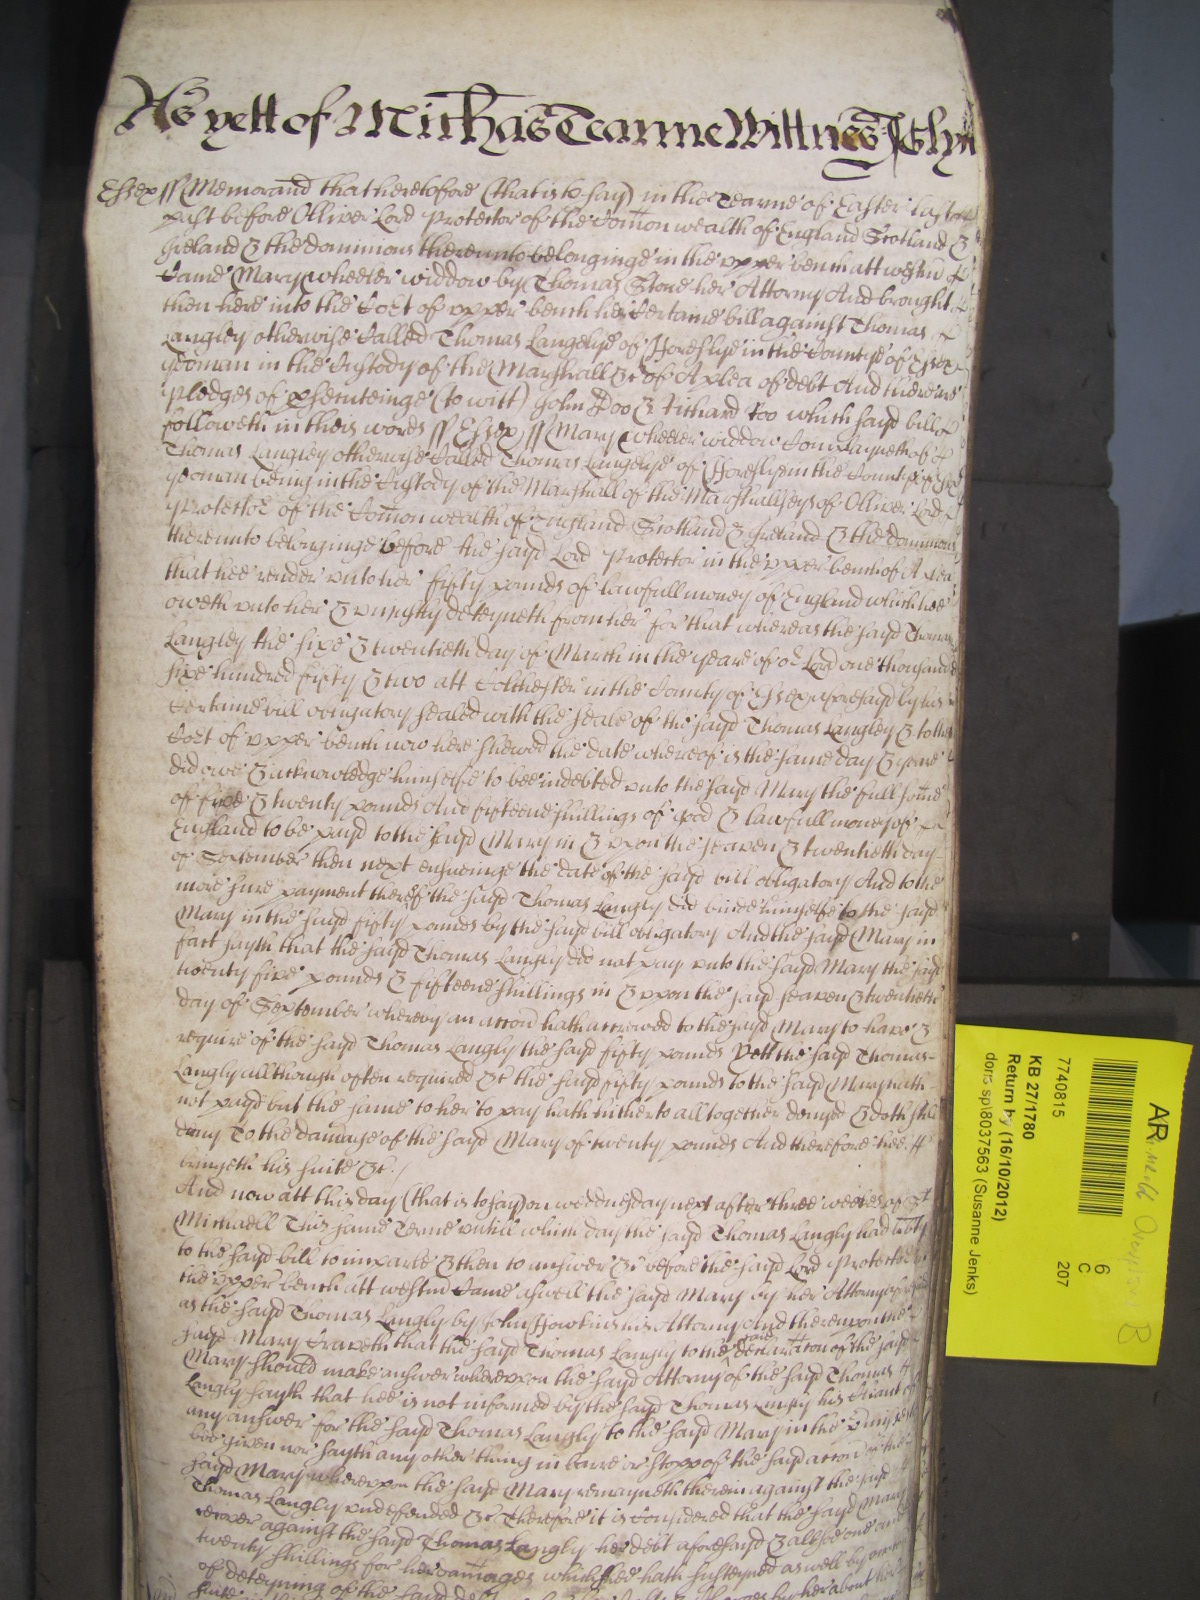 As yett of Michas Tearme Wittnes J Glyn
Essex ss Memorand that heretofore (that is to say) in the Tearme of Easter last
past before Olliver Lord Protector of the Comon wealth of England Scotland &
Ireland & the dominions thereunto belonginge in the upper bench att westm
Came Mary wheeler widdow by Thomas Stone her Attorny And brought
then here into the Cort of upper bench her Certaine bill against Thomas
Langley otherwise Called Thomas Langelye of Horeslye in the Countye of Essex
yeoman in the Custody of the Marshall &c of A plea of debt And there are
pledges of prosecuteinge (to witt) John Doo & Richard Roo which sayd bill
followeth in theis words ss Essex ss Mary wheeler widdow Complayneth of
Thomas Langley otherwise Called Thomas Langelye of Horeslye in the County of Essex
yeoman being in the Custody of the Marshall of the Marshallseys of Olliver Lord
Protector of the Comon wealth of England Scotland & Ireland & the dominions
thereunto belonginge before the sayd Lord Protector in the upper bench of A plea
that hee render unto her fifty pounds of lawfull money of England which hee
oweth unto her & uniustly deteyneth from her for that whereas the sayd Thomas
Langley the sixe & twentieth day of March in the yeare of or Lord one thousand
sixe hundred fifty & two att Colchester in the County of Essex aforesayd by his
Certaine bill obligatory sealed with the seale of the sayd Thomas Langley & to the
Cort of upper bench now here shewed the date whereof is the same day & yeare
did owe & acknowledge himselfe to bee indebted unto the sayd Mary the full some
of five & twenty pounds And fifteene shillings of good & lawfull money of
England to be payd to the sayd Mary in & upon the seaven & twentieth day
of September then next ensueinge the date of the sayd bill obligatory And to the
more sure payment thereof the sayd Thomas Langly did binde himselfe to the sayd
Mary in the sayd fifty pounds by the sayd bill obligatory And the sayd Mary in
fact sayth that the sayd Thomas Langly did not pay unto the sayd Mary the sayd
twenty five pounds & fifteene shillings in & upon the sayd seaven & twentieth
day of September whereby an accon hath accrewed to the sayd Mary to have &
require of the sayd Thomas Langly the sayd fifty pounds Yett the sayd Thomas
Langly allthough often required &c the sayd fifty pounds to the sayd Mary hath
not payd but the same to her to pay hath hitherto alltogether denyed & doth still
deny To the damage of the sayd Mary of twenty pounds And therefore hee
bringeth his suite &c.
And now att this day (that is to say) on wednesday next after three weekes of st
Michaell This same Terme untill which day the sayd Thomas Langly had liberty
to the sayd bill to imparle & then to answer &c before the sayd Lord Protector in
the upper bench att westm Came aswell the sayd Mary by her Attorny aforesayd
as the sayd Thomas Langly by John Hawkins his Attorny And thereupon the
sayd Mary Craveth that the sayd Thomas Langly to the said declaracon of the sayd
Mary should make answer whereupon the sayd Attorny of the sayd Thomas
Langly sayth that hee is not informed by the sayd Thomas Langly his Client of
any answer for the sayd Thomas Langly to the sayd Mary in the premisses to
bee given nor sayth any other thing in barre or stopp of the sayd accon of the
sayd Mary whereupon the sayd Mary remayneth therein against the sayd
Thomas Langly undefended &c Therefore it is Considered that the sayd Mary
recover against the sayd Thomas Langly her debt aforesayd & allsoe one and
twenty shillings for her damages which shee hath susteyned as well by occasion
of deteyning of the sayd debt
AR
7740815
KB 27/1780
Return by (16/10/2012)
doris sp\8037563 (Susanne Jenks)
6
C
207
B